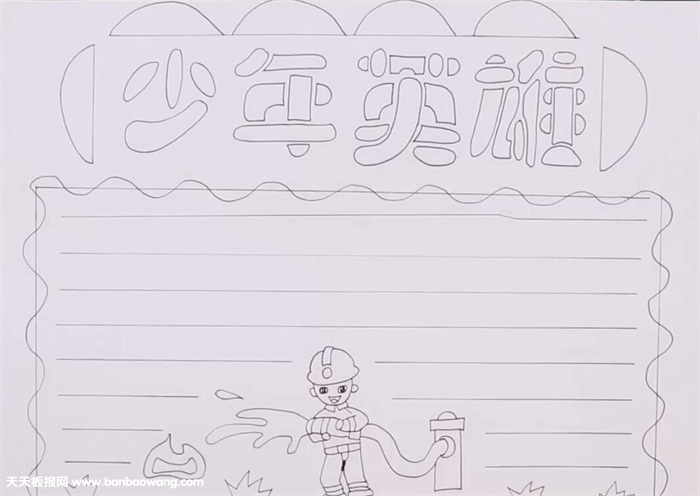 少年英雄
天天板报网 www.banbaowang.com